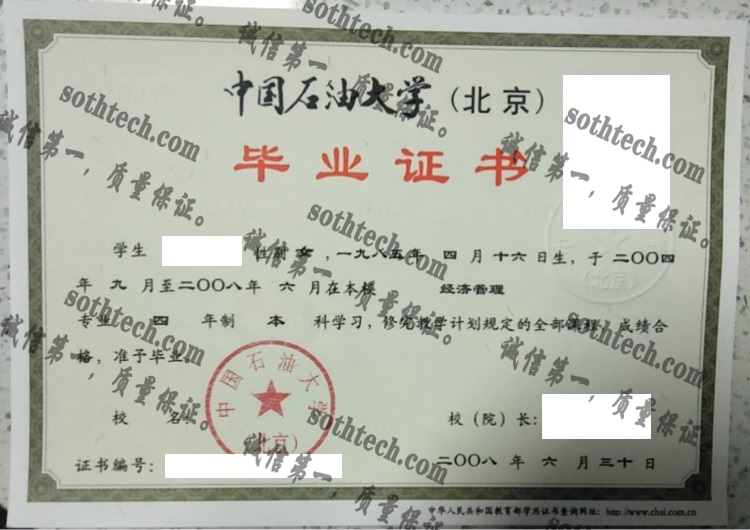 中国石油大学（北京）
毕业证书
学生 性别 女，一九八五年 四 月 十六 日生，于 二〇〇四
年 九 月至二〇〇八年 六 月在本校 经济管理
专业 四 年制 本 科学习，修完教学计划规定的全部课程，成绩合
格，准予毕业。
校 名 校（院）长：
中国石油大学
（北京）
（北京）
证书编号： 二〇〇八 年 六 月 三十 日
中华人民共和国教育部学历证书查询网址：http://www.chsi.com.cn
sothtech.com
诚信第一，质量保证。
sothtech.com
诚信第一，质量保证。
sothtech.com
诚信第一，质量保证。
sothtech.com
诚信第一，质量保证。
sothtech.com
诚信第一，质量保证。
sothtech.com
诚信第一，质量保证。
sothtech.com
诚信第一，质量保证。
sothtech.com
诚信第一，质量保证。